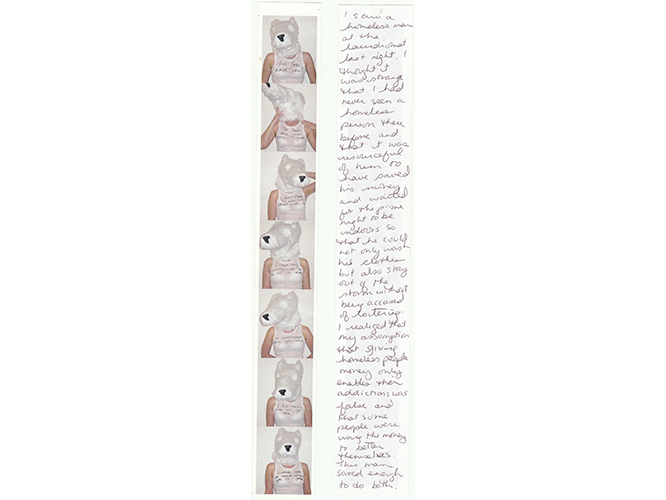 I saw a
homeless man
at the
laundromat
last night. I
thought it
was strange
that I had
never seen a
homeless
person there
before and
that it was
resourceful
of him to
have saved
his money
and waited
for the prime
night to be
indoors so
that he could
not only wash
his clothes
but also stay
out of the
storm without
being accused
of loitering.
I realized that
my assumption
that giving
homeless people
money only
enables their
addictions was
false and
that some
people were
using the money
to better
themselves.
This man
saved enough
to do both.